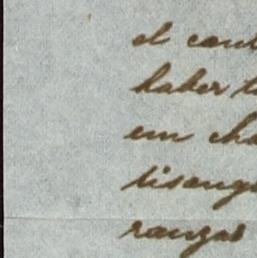 el cont
haber t
em cha
lisonge
ranzas